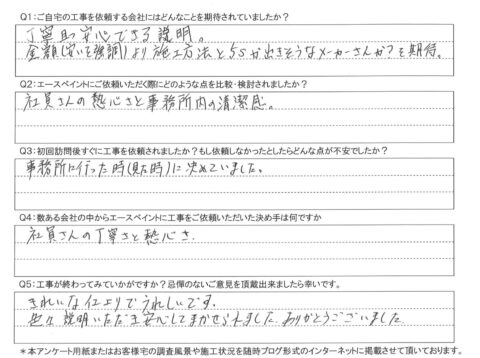 Q1:ご自宅の工事を依頼する会社にはどんなことを期待されていましたか?
丁寧で安心できる説明。
金額(安いを強調)より施工方法と5Sが出きそうなメーカーさんか?を期待。
Q2:エースペイントにご依頼いただく際にどのような点を比較・検討されましたか?
社員さんの熱心さと事務所内の清潔感。
Q3:初回訪問後すぐに工事を依頼されましたか?もし依頼しなかったとしたらどんな点が不安でしたか?
事務所に行った時(見た時)に決めていました。
Q4:数ある会社の中からエースペイントに工事をご依頼いただいた決め手は何ですか
社員さんの丁寧さと熱心さ.
Q5:工事が終わってみていかがですか?忌憚のないご意見を頂戴出来ましたら幸いです。
きれいな仕上りでうれしいです.
色々説明いただき安心してまかせられました.ありがとうございました
*本アンケート用紙またはお客様宅の調査風景や施工状況を随時ブログ形式のインターネットに掲載させて頂いております。